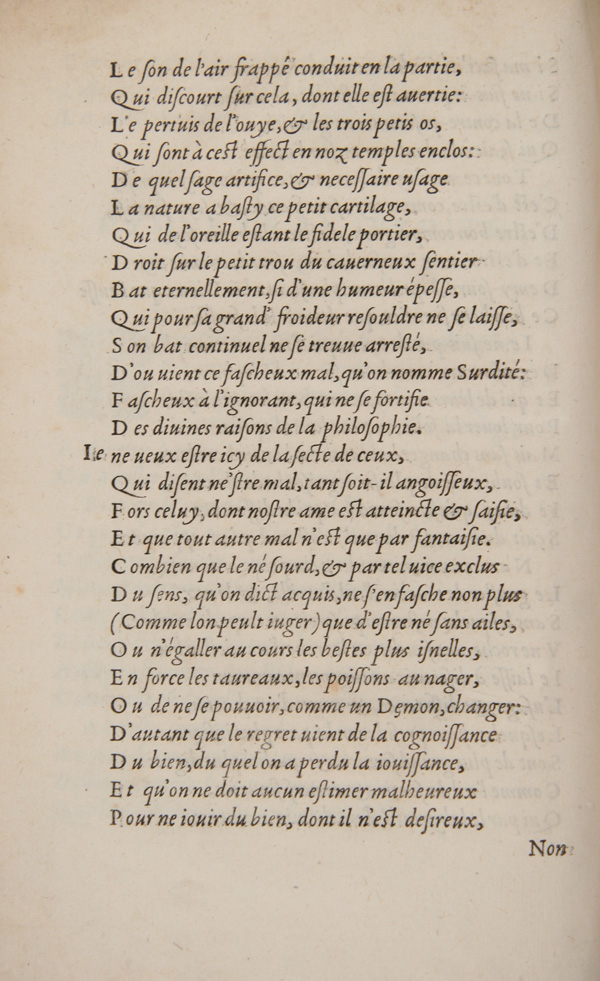 Le ſon de l'air frappé conduit en la partie,
Qui diſcourt ſur cela, dont elle eſt auertie:
Le pertuis de l'ouye, & les trois petis os,
Qui ſont à ceſt effect en noz temples enclos:
De quel ſage artifice, & neceſſaire uſage
La nature a baſty ce petit cartilage,
Qui de l'oreille eſtant le fidele portier,
Droit ſur le petit trou du cauerneux ſentier
Bat eternellement, ſi d'une humeur épeſſe,
Qui pour ſa grand' froideur reſouldre ne ſe laiſſe,
Son bat continuel ne ſe treuue arreſté,
D'ou uient ce faſcheux mal, qu'on nomme Surdité:
Faſcheux à l'ignorant, qui ne ſe fortifie
Des diuines raiſons de la philoſophie.
Ie ne ueux eſtre icy de la ſecte de ceux,
Qui diſent n'eſtre mal, tant ſoit-il angoiſſeux,
Fors celuy, dont noſtre ame eſt atteincte & ſaiſie,
Et que tout autre mal n'eſt que par fantaiſie.
Combien que le né ſourd, & par tel uice exclus
Du ſens, qu'on dict acquis, ne ſ'en faſche non plus
(Comme lon peult iuger) que d'eſtre né ſans ailes,
Ou n'égaller au cours les beſtes plus iſnelles,
En force les taureaux, les poiſſons au nager,
Ou de ne ſe pouuoir, comme un Demon, changer:
D'autant que le regret uient de la cognoiſſance
Du bien, du quel on a perdu la iouiſſance,
Et qu'on ne doit aucun eſtimer malheureux
Pour ne iouir du bien, dont il n'eſt deſireux,
Non